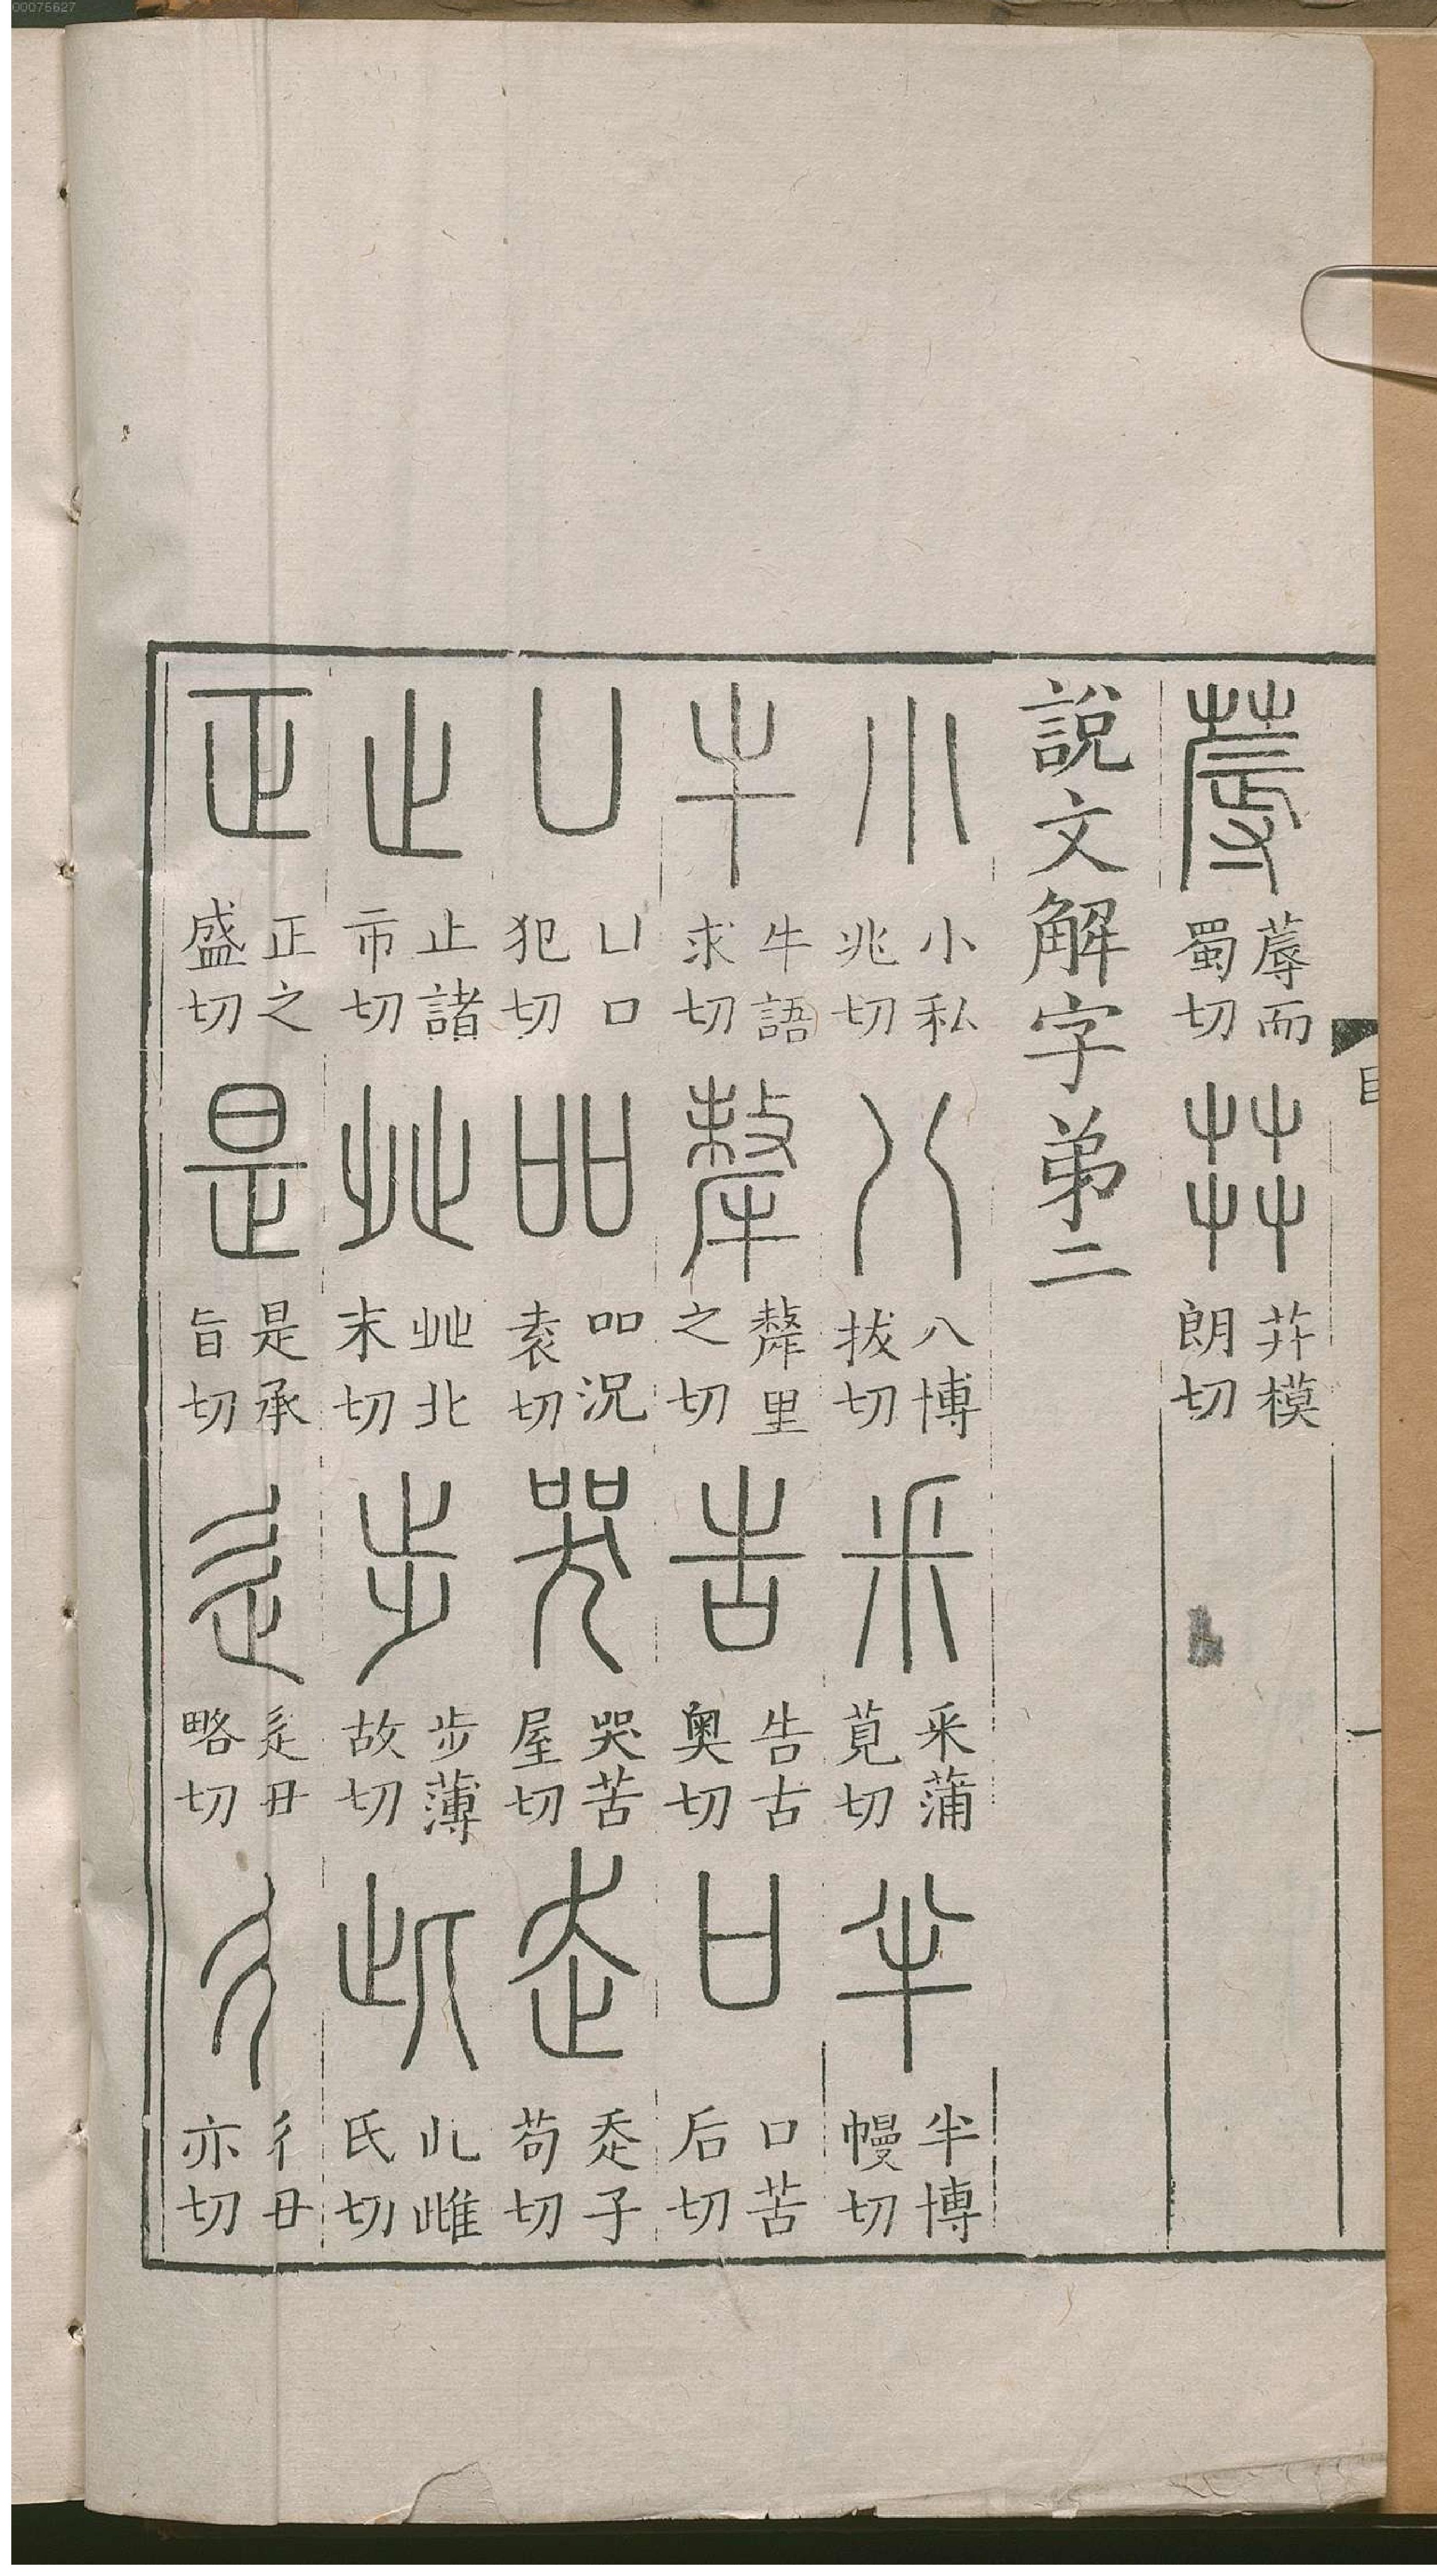 00075627
目
一
蓐 蓐而蜀切 茻 茻模朗切
說文解字弟二
小 小私兆切 八 八博拔切 釆 釆蒲莧切 半 半博幔切
牛 牛語求切 犛 犛里之切 告 告古奧切 口 口苦后切
凵 凵口犯切 吅 吅況袁切 哭 哭苦屋切 走 赱子苟切
止 止諸市切 癶 癶北末切 步 步薄故切 此 此雌氏切
正 正之盛切 是 是承旨切 辵 辵丑略切 彳 彳丑亦切